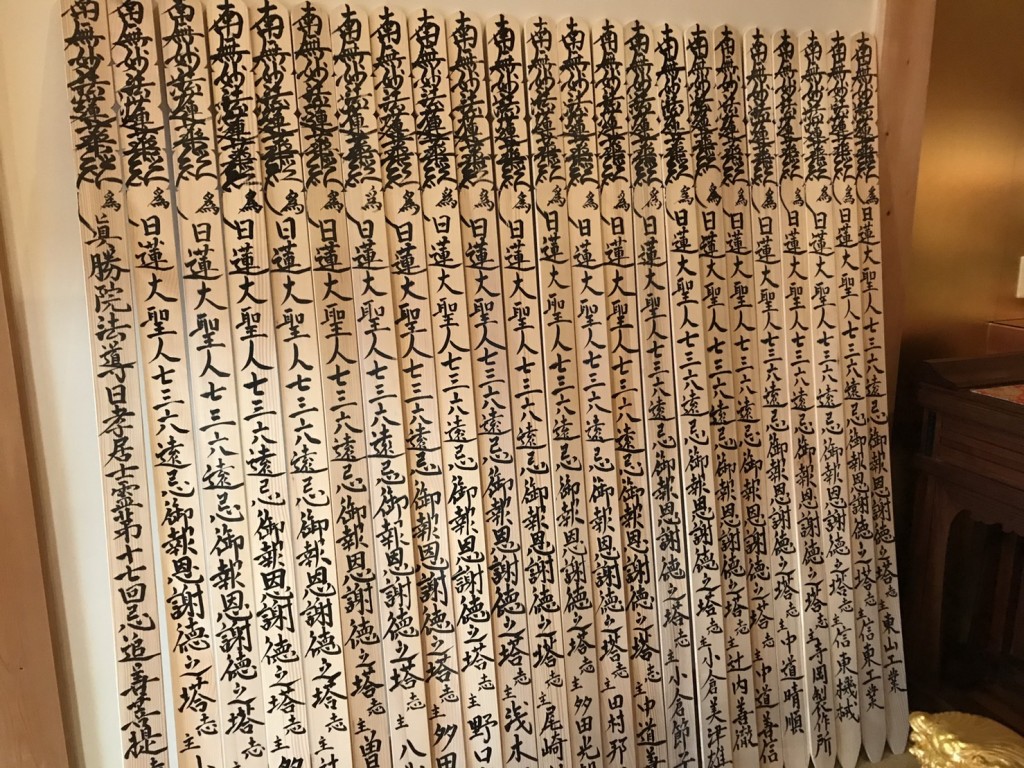 南無妙法蓮華経 為 日蓮大聖人七三六遠忌御報恩謝徳之塔 志主 東山工業
南無妙法蓮華経 為 日蓮大聖人七三六遠忌御報恩謝徳之塔 志主 信東機械
南無妙法蓮華経 為 日蓮大聖人七三六遠忌御報恩謝徳之塔 志主 寺岡製作所
南無妙法蓮華経 為 日蓮大聖人七三六遠忌御報恩謝徳之塔 志主 中道晴順
南無妙法蓮華経 為 日蓮大聖人七三六遠忌御報恩謝徳之塔 志主 中道善信
南無妙法蓮華経 為 日蓮大聖人七三六遠忌御報恩謝徳之塔 志主 辻内善徹
南無妙法蓮華経 為 日蓮大聖人七三六遠忌御報恩謝徳之塔 志主 小倉美津雄
南無妙法蓮華経 為 日蓮大聖人七三六遠忌御報恩謝徳之塔 志主 小倉節子
南無妙法蓮華経 為 日蓮大聖人七三六遠忌御報恩謝徳之塔 志主 中道善
南無妙法蓮華経 為 日蓮大聖人七三六遠忌御報恩謝徳之塔 志主 田村邦
南無妙法蓮華経 為 日蓮大聖人七三六遠忌御報恩謝徳之塔 志主 多田光
南無妙法蓮華経 為 日蓮大聖人七三六遠忌御報恩謝徳之塔 志主 尾崎
南無妙法蓮華経 為 日蓮大聖人七三六遠忌御報恩謝徳之塔 志主 浅木
南無妙法蓮華経 為 日蓮大聖人七三六遠忌御報恩謝徳之塔 志主 野口
南無妙法蓮華経 為 日蓮大聖人七三六遠忌御報恩謝徳之塔 志主 多田
南無妙法蓮華経 為 日蓮大聖人七三六遠忌御報恩謝徳之塔 志主 八
南無妙法蓮華経 為 日蓮大聖人七三六遠忌御報恩謝徳之塔 志主 曽
南無妙法蓮華経 為 日蓮大聖人七三六遠忌御報恩謝徳之塔 志主 辻
南無妙法蓮華経 為 日蓮大聖人七三六遠忌御報恩謝徳之塔 志主 多
南無妙法蓮華経 為 日蓮大聖人七三六遠忌御報恩謝徳之塔 志
南無妙法蓮華経 為 日蓮大聖人七三六遠忌御報恩謝徳之塔 志主 小
南無妙法蓮華経 為 眞勝院法導日孝居士霊第十七回忌追善菩提